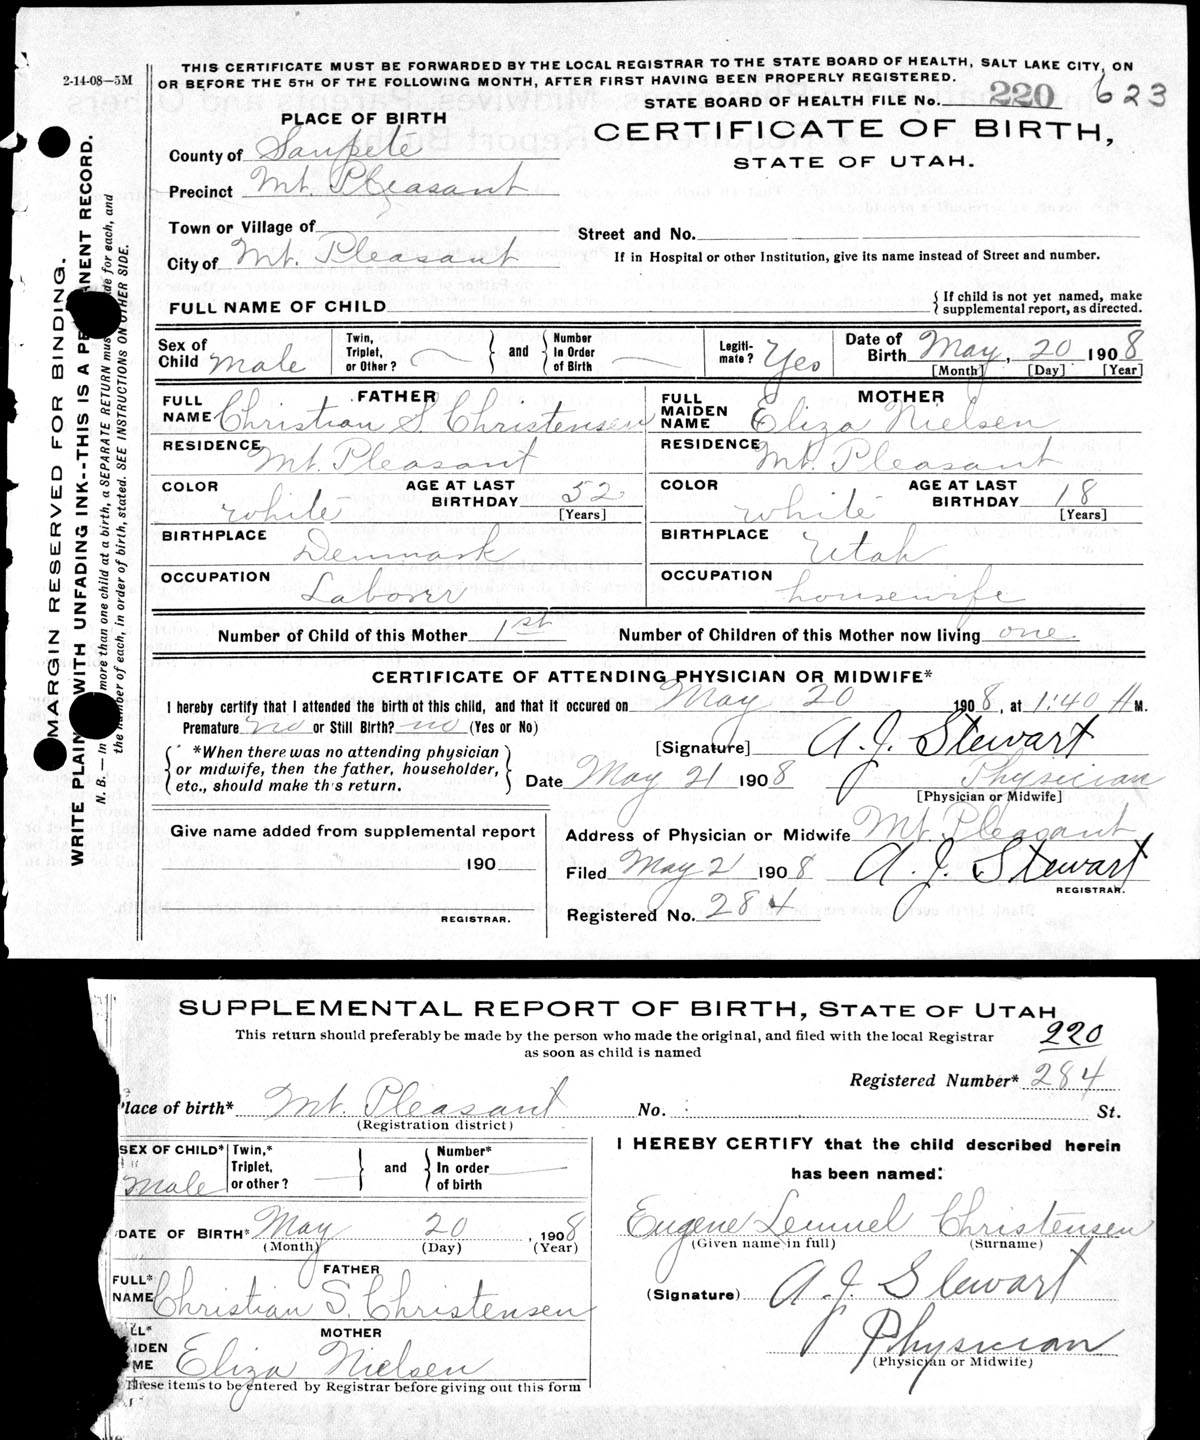 2-14-08—5M
THIS CERTIFICATE MUST BE FORWARDED BY THE LOCAL REGISTRAR TO THE STATE BOARD OF HEALTH, SALT LAKE CITY, ON
OR BEFORE THE 5TH OF THE FOLLOWING MONTH, AFTER FIRST HAVING BEEN PROPERLY REGISTERED.
STATE BOARD OF HEALTH FILE No. 220 623
PLACE OF BIRTH
CERTIFICATE OF BIRTH,
STATE OF UTAH.
County of Sanpete
Precinct Mt. Pleasant
Town or Village of
Street and No.
City of Mt. Pleasant
If in Hospital or other Institution, give its name instead of Street and number.
FULL NAME OF CHILD
{ If child is not yet named, make
supplemental report, as directed.
Sex of Child Male
Twin, Triplet, or Other? } and { Number In Order of Birth
Legiti-mate? Yes
Date of Birth May, 20 1908
[Month] [Day] [Year]
FATHER
FULL NAME Christian S. Christensen
RESIDENCE Mt. Pleasant
COLOR white AGE AT LAST BIRTHDAY 52
[Years]
BIRTHPLACE Denmark
OCCUPATION Laborer
MOTHER
FULL MAIDEN NAME Eliza Nielsen
RESIDENCE Mt. Pleasant
COLOR white AGE AT LAST BIRTHDAY 18
[Years]
BIRTHPLACE Utah
OCCUPATION housewife
Number of Child of this Mother 1st Number of Children of this Mother now living one
CERTIFICATE OF ATTENDING PHYSICIAN OR MIDWIFE*
I hereby certify that I attended the birth of this child, and that it occured on May 20 1908, at 1:40 A M.
Premature no or Still Birth? no (Yes or No)
{ *When there was no attending physician
or midwife, then the father, householder,
etc., should make this return. }
[Signature] A. J. Stewart
Date May 21 1908 Physician
[Physician or Midwife]
Give name added from supplemental report
190
REGISTRAR.
Address of Physician or Midwife Mt. Pleasant
Filed May 21 1908 A. J. Stewart
REGISTRAR.
Registered No. 284
MARGIN RESERVED FOR BINDING.
WRITE PLAIN WITH UNFADING INK--THIS IS A PE NENT RECORD.
N. B.—In more than one child at a birth, a SEPARATE RETURN mus de for each, and
the number of each, in order of birth, stated. SEE INSTRUCTIONS ON OTHER SIDE.
SUPPLEMENTAL REPORT OF BIRTH, STATE OF UTAH
This return should preferably be made by the person who made the original, and filed with the local Registrar
as soon as child is named
220
Registered Number* 284
lace of birth* Mt. Pleasant No. St.
(Registration district)
SEX OF CHILD* Male
Twin,* Triplet, or other? } and { Number* In order of birth
DATE OF BIRTH* May 20, 1908
(Month) (Day) (Year)
FATHER
FULL* NAME Christian S. Christensen
MOTHER
LL* IDEN ME Eliza Nielsen
These items to be entered by Registrar before giving out this form
I HEREBY CERTIFY that the child described herein
has been named:
Eugene Lemuel Christensen
(Given name in full) (Surname)
(Signature) A. J. Stewart
Physician
(Physician or Midwife)